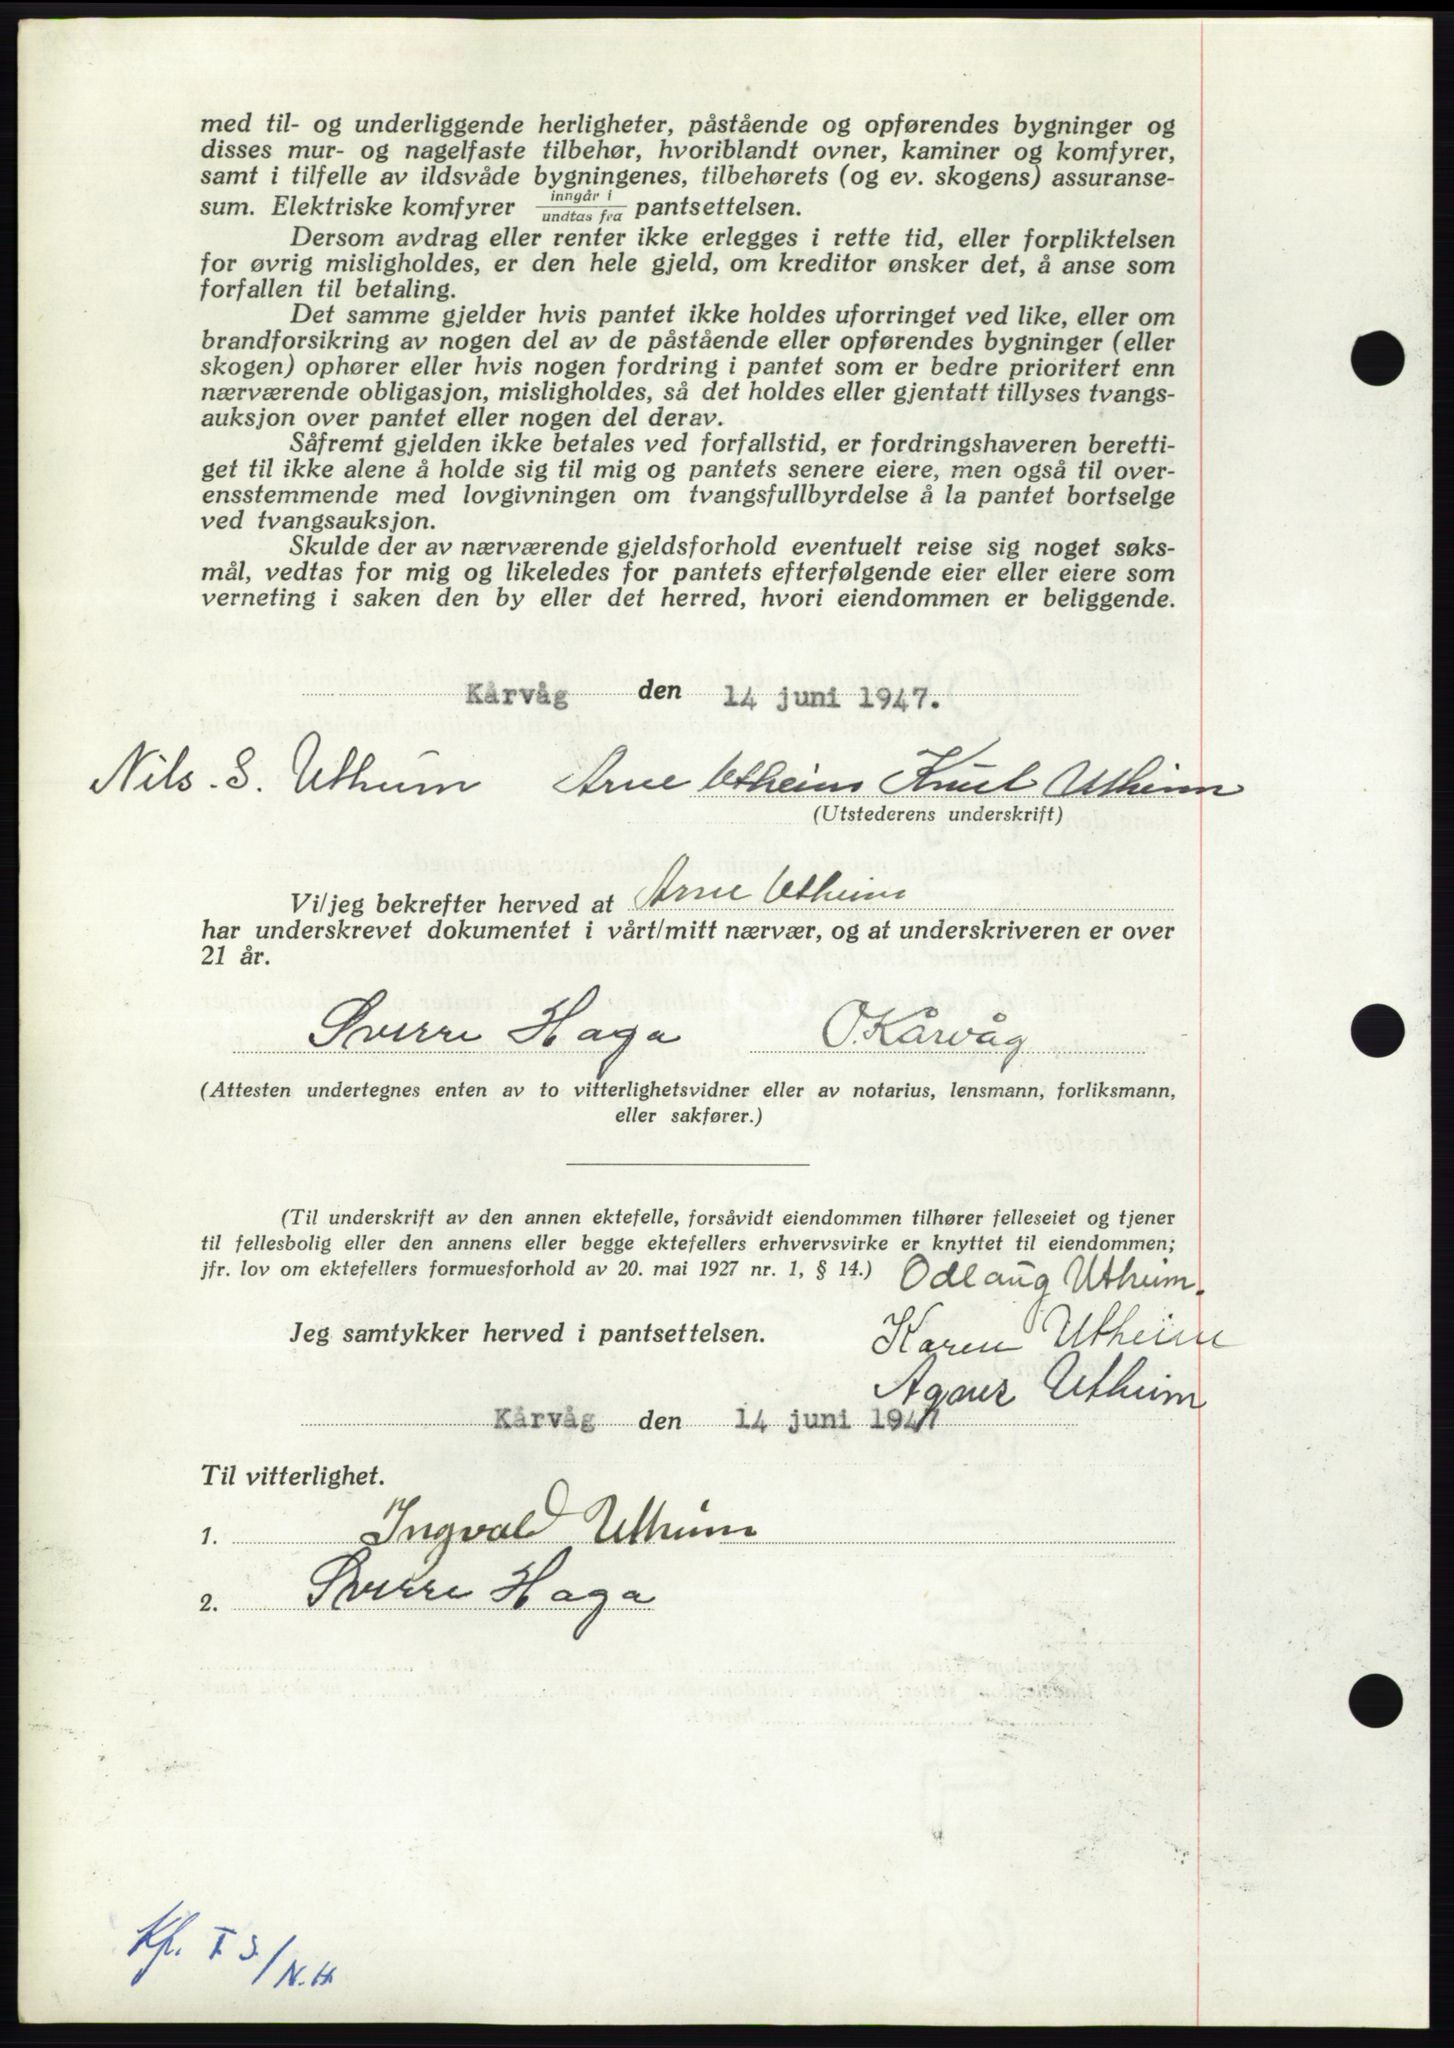 med til- og underliggende herligheter, påstående og opførendes bygninger og
disses mur- og nagelfaste tilbehør, hvoriblandt ovner, kaminer og komfyrer,
samt i tilfelle av ildsvåde bygningenes, tilbehørets (og ev. skogens) assuranse-
sum. Elektriske komfyrer inngår i / undtas fra pantsettelsen.
Dersom avdrag eller renter ikke erlegges i rette tid, eller forpliktelsen
for øvrig misligholdes, er den hele gjeld, om kreditor ønsker det, å anse som
forfallen til betaling.
Det samme gjelder hvis pantet ikke holdes uforringet ved like, eller om
brandforsikring av nogen del av de påstående eller opførendes bygninger (eller
skogen) ophører eller hvis nogen fordring i pantet som er bedre prioritert enn
nærværende obligasjon, misligholdes, så det holdes eller gjentatt tillyses tvangs-
auksjon over pantet eller nogen del derav.
Såfremt gjelden ikke betales ved forfallstid, er fordringshaveren beretti-
get til ikke alene å holde sig til mig og pantets senere eiere, men også til over-
ensstemmende med lovgivningen om tvangsfullbyrdelse å la pantet bortselge
ved tvangsauksjon.
Skulde der av nærværende gjeldsforhold eventuelt reise sig noget søks-
mål, vedtas for mig og likeledes for pantets efterfølgende eier eller eiere som
verneting i saken den by eller det herred, hvori eiendommen er beliggende.
Kårvåg den 14 juni 1947.
Nils. S. Utheim Arne Utheim Knut Utheim
(Utstederens underskrift)
Vi/jeg bekrefter herved at Arne Utheim
har underskrevet dokumentet i vårt/mitt nærvær, og at underskriveren er over
21 år.
Sverre Haga O. Kårvåg
(Attesten undertegnes enten av to vitterlighetsvidner eller av notarius, lensmann, forliksmann,
eller sakfører.)
(Til underskrift av den annen ektefelle, forsåvidt eiendommen tilhører felleseiet og tjener
til fellesbolig eller den annens eller begge ektefellers erhvervsvirke er knyttet til eiendommen;
jfr. lov om ektefellers formuesforhold av 20. mai 1927 nr. 1, § 14.) Odlaug Utheim.
Jeg samtykker herved i pantsettelsen. Karen Utheim
Agnes Utheim
Kårvåg den 14 juni 1947
Til vitterlighet.
1. Ingvald Utheim
2. Sverre Haga
Kp. I S./N.H.